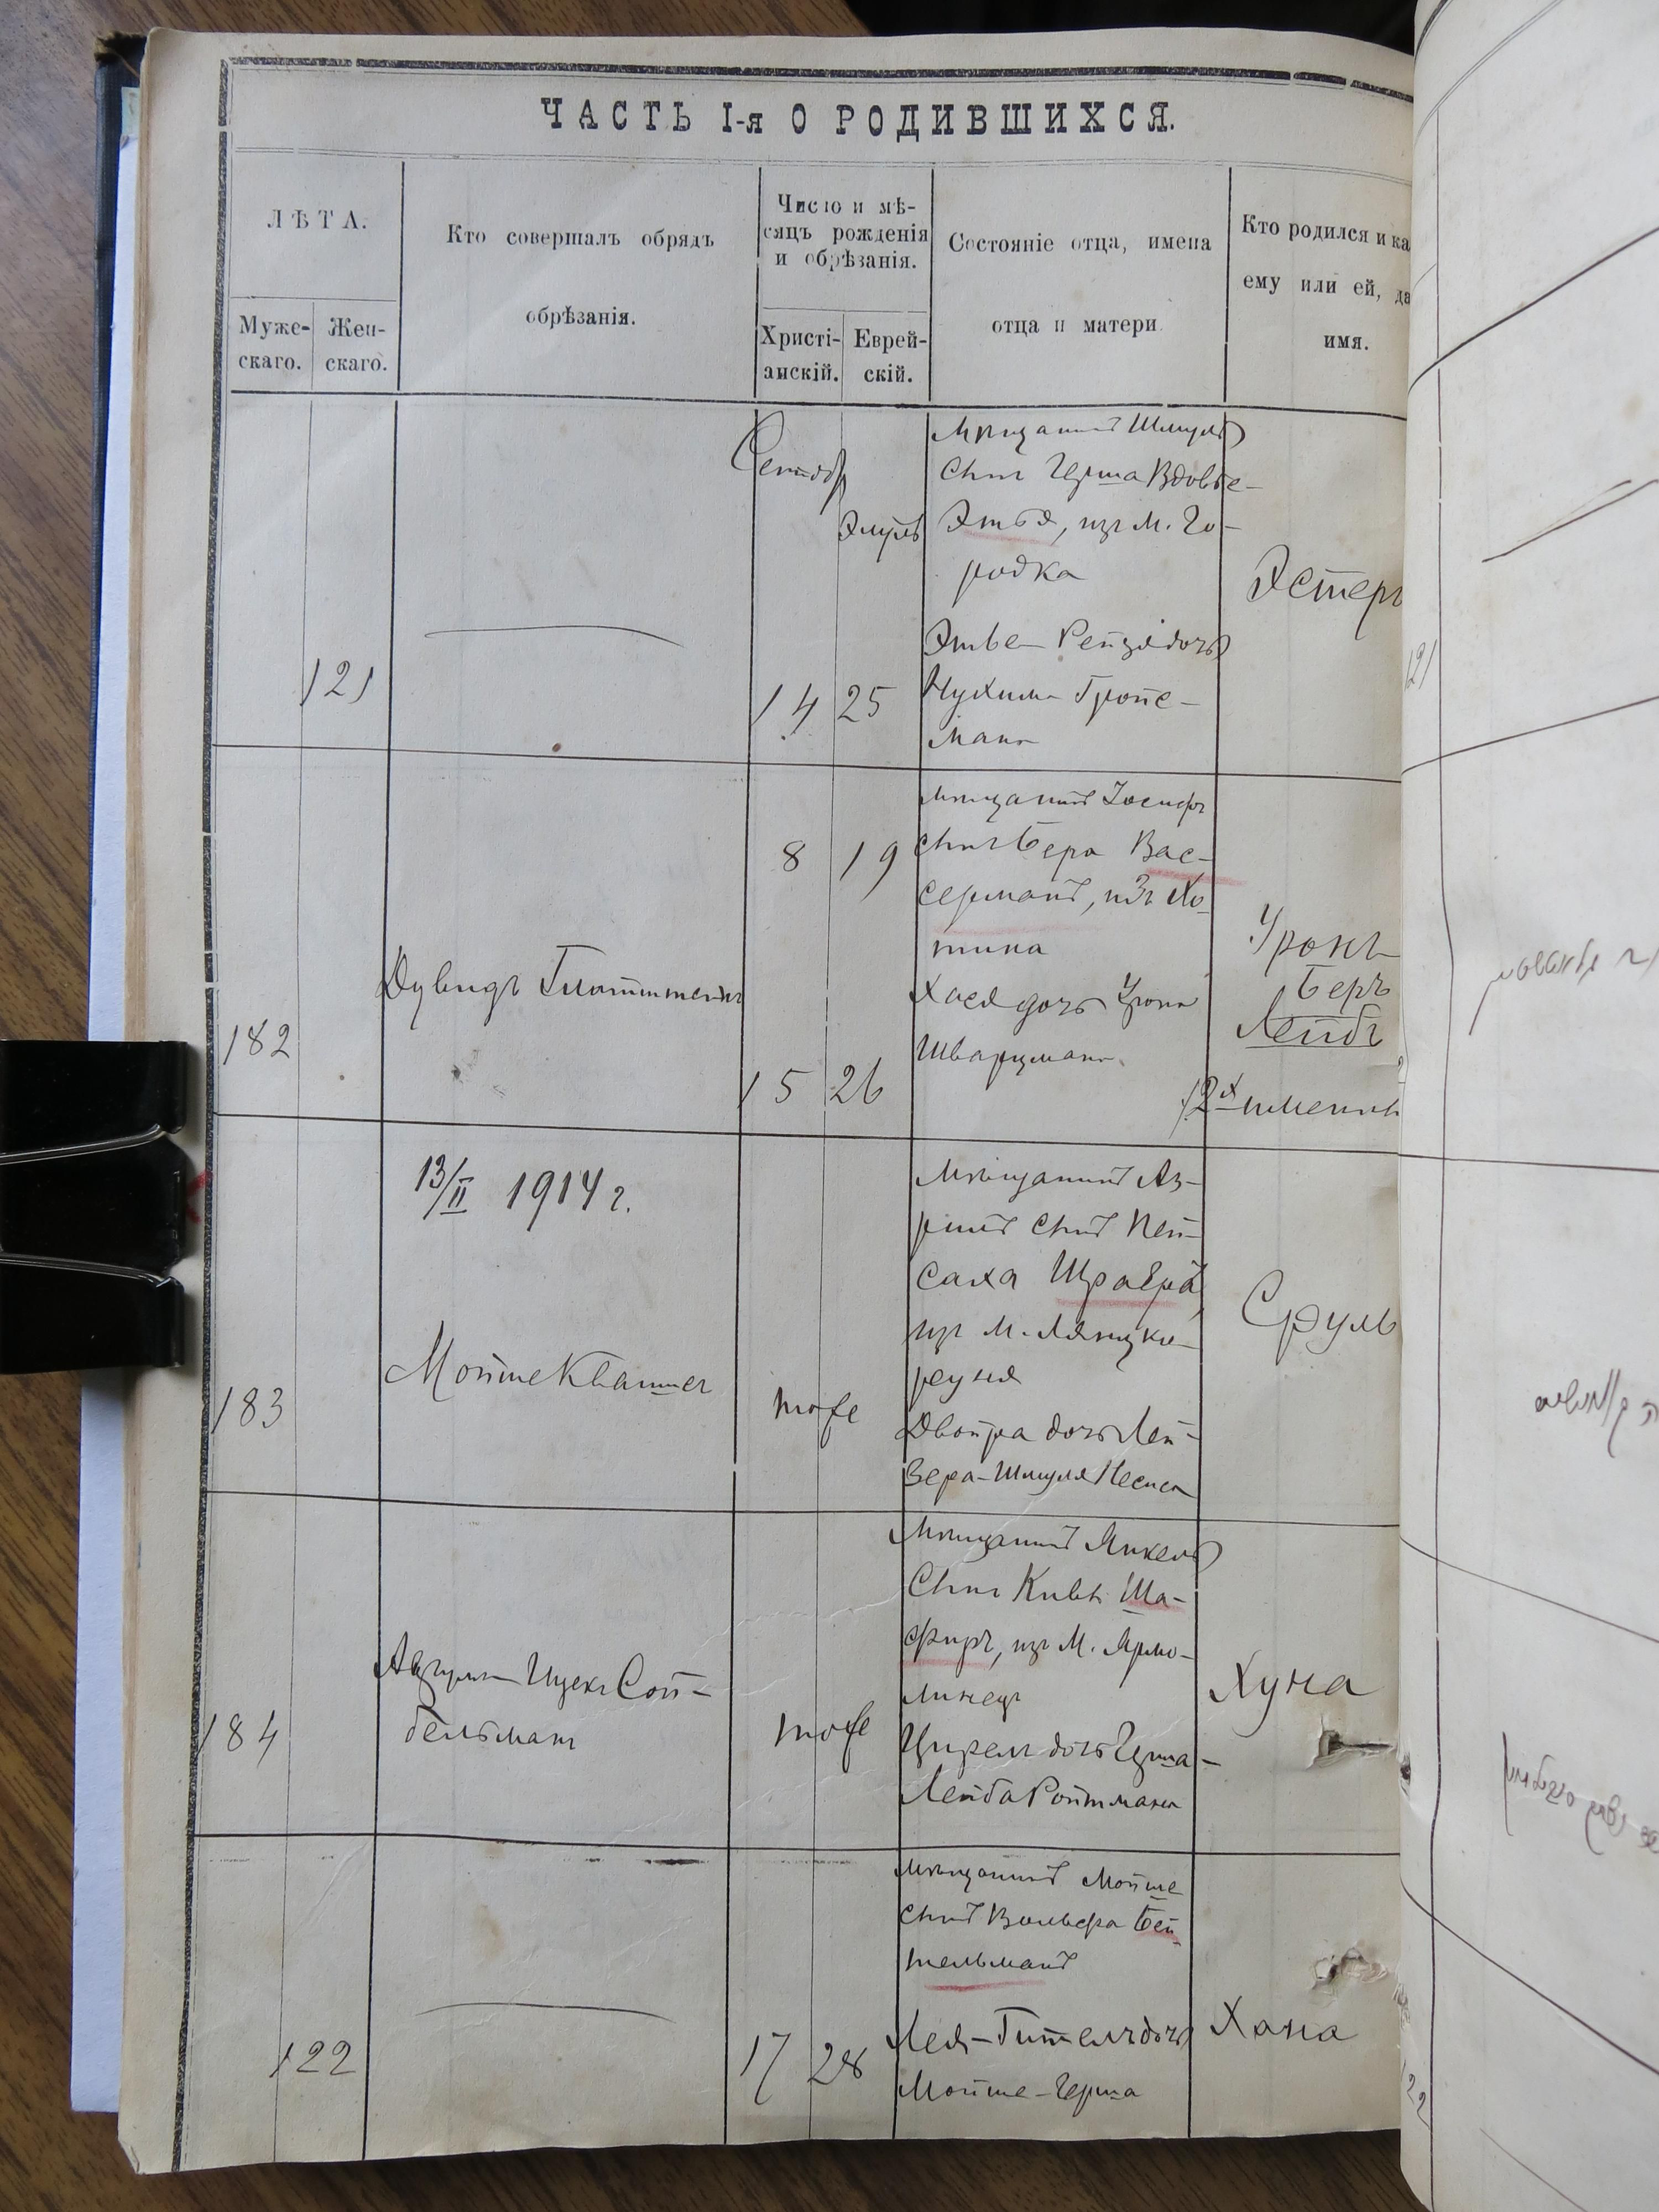 ЧАСТЬ I-я О РОДИВШИХСЯ.
ЛѢТА.
Муже-
скаго.
Жен-
скаго.
Кто совершалъ обрядъ
обрѣзанія.
Число и мѣ-
сяцъ рожденія
и обрѣзанія.
Христі-
анскій.
Еврей-
скій.
Состояніе отца, имена
отца и матери.
Кто родился и ка
ему или ей, да
имя.
121
Сентябр
Элулъ
14 25
Мѣщанинъ Шмуль
сынъ Герша Вдовъе-
Этъя, изъ м. Го-
родка
Этье Рейзя дочь
Нухима Гройс-
мана
Эстеръ
182
Дувидъ Глоттштейнъ
8 19
15 26
Мѣщанинъ Іосифъ
сынъ Бера Вас-
серманъ, изъ Хо-
тина
Хася дочь Урона
Шварцмана
Уронъ
Беръ
Лейбъ
/2х именны
183
13/II 1914 г.
Мойше Квашер
тоже
Мѣщанинъ Аз-
рилъ сынъ Пей-
саха Щраера,
изъ м. Лянцко-
рунья
Двойра дочь Лей-
зера-Шмуля Песиса
Сруль
184
Ицекъ Сой-
бельманъ
тоже
Мѣщанинъ Янкель
сынъ Кивы Ша-
фиръ, изъ м. Ярмо-
линецъ
Цирель дочь Герша-
Лейба Ройтмана
Хуна
122
17 28
Мѣщанинъ Мойше
сынъ Вольфа Бей-
тельманъ
Лея-Гитель дочь
Мойше-Герша
Хана